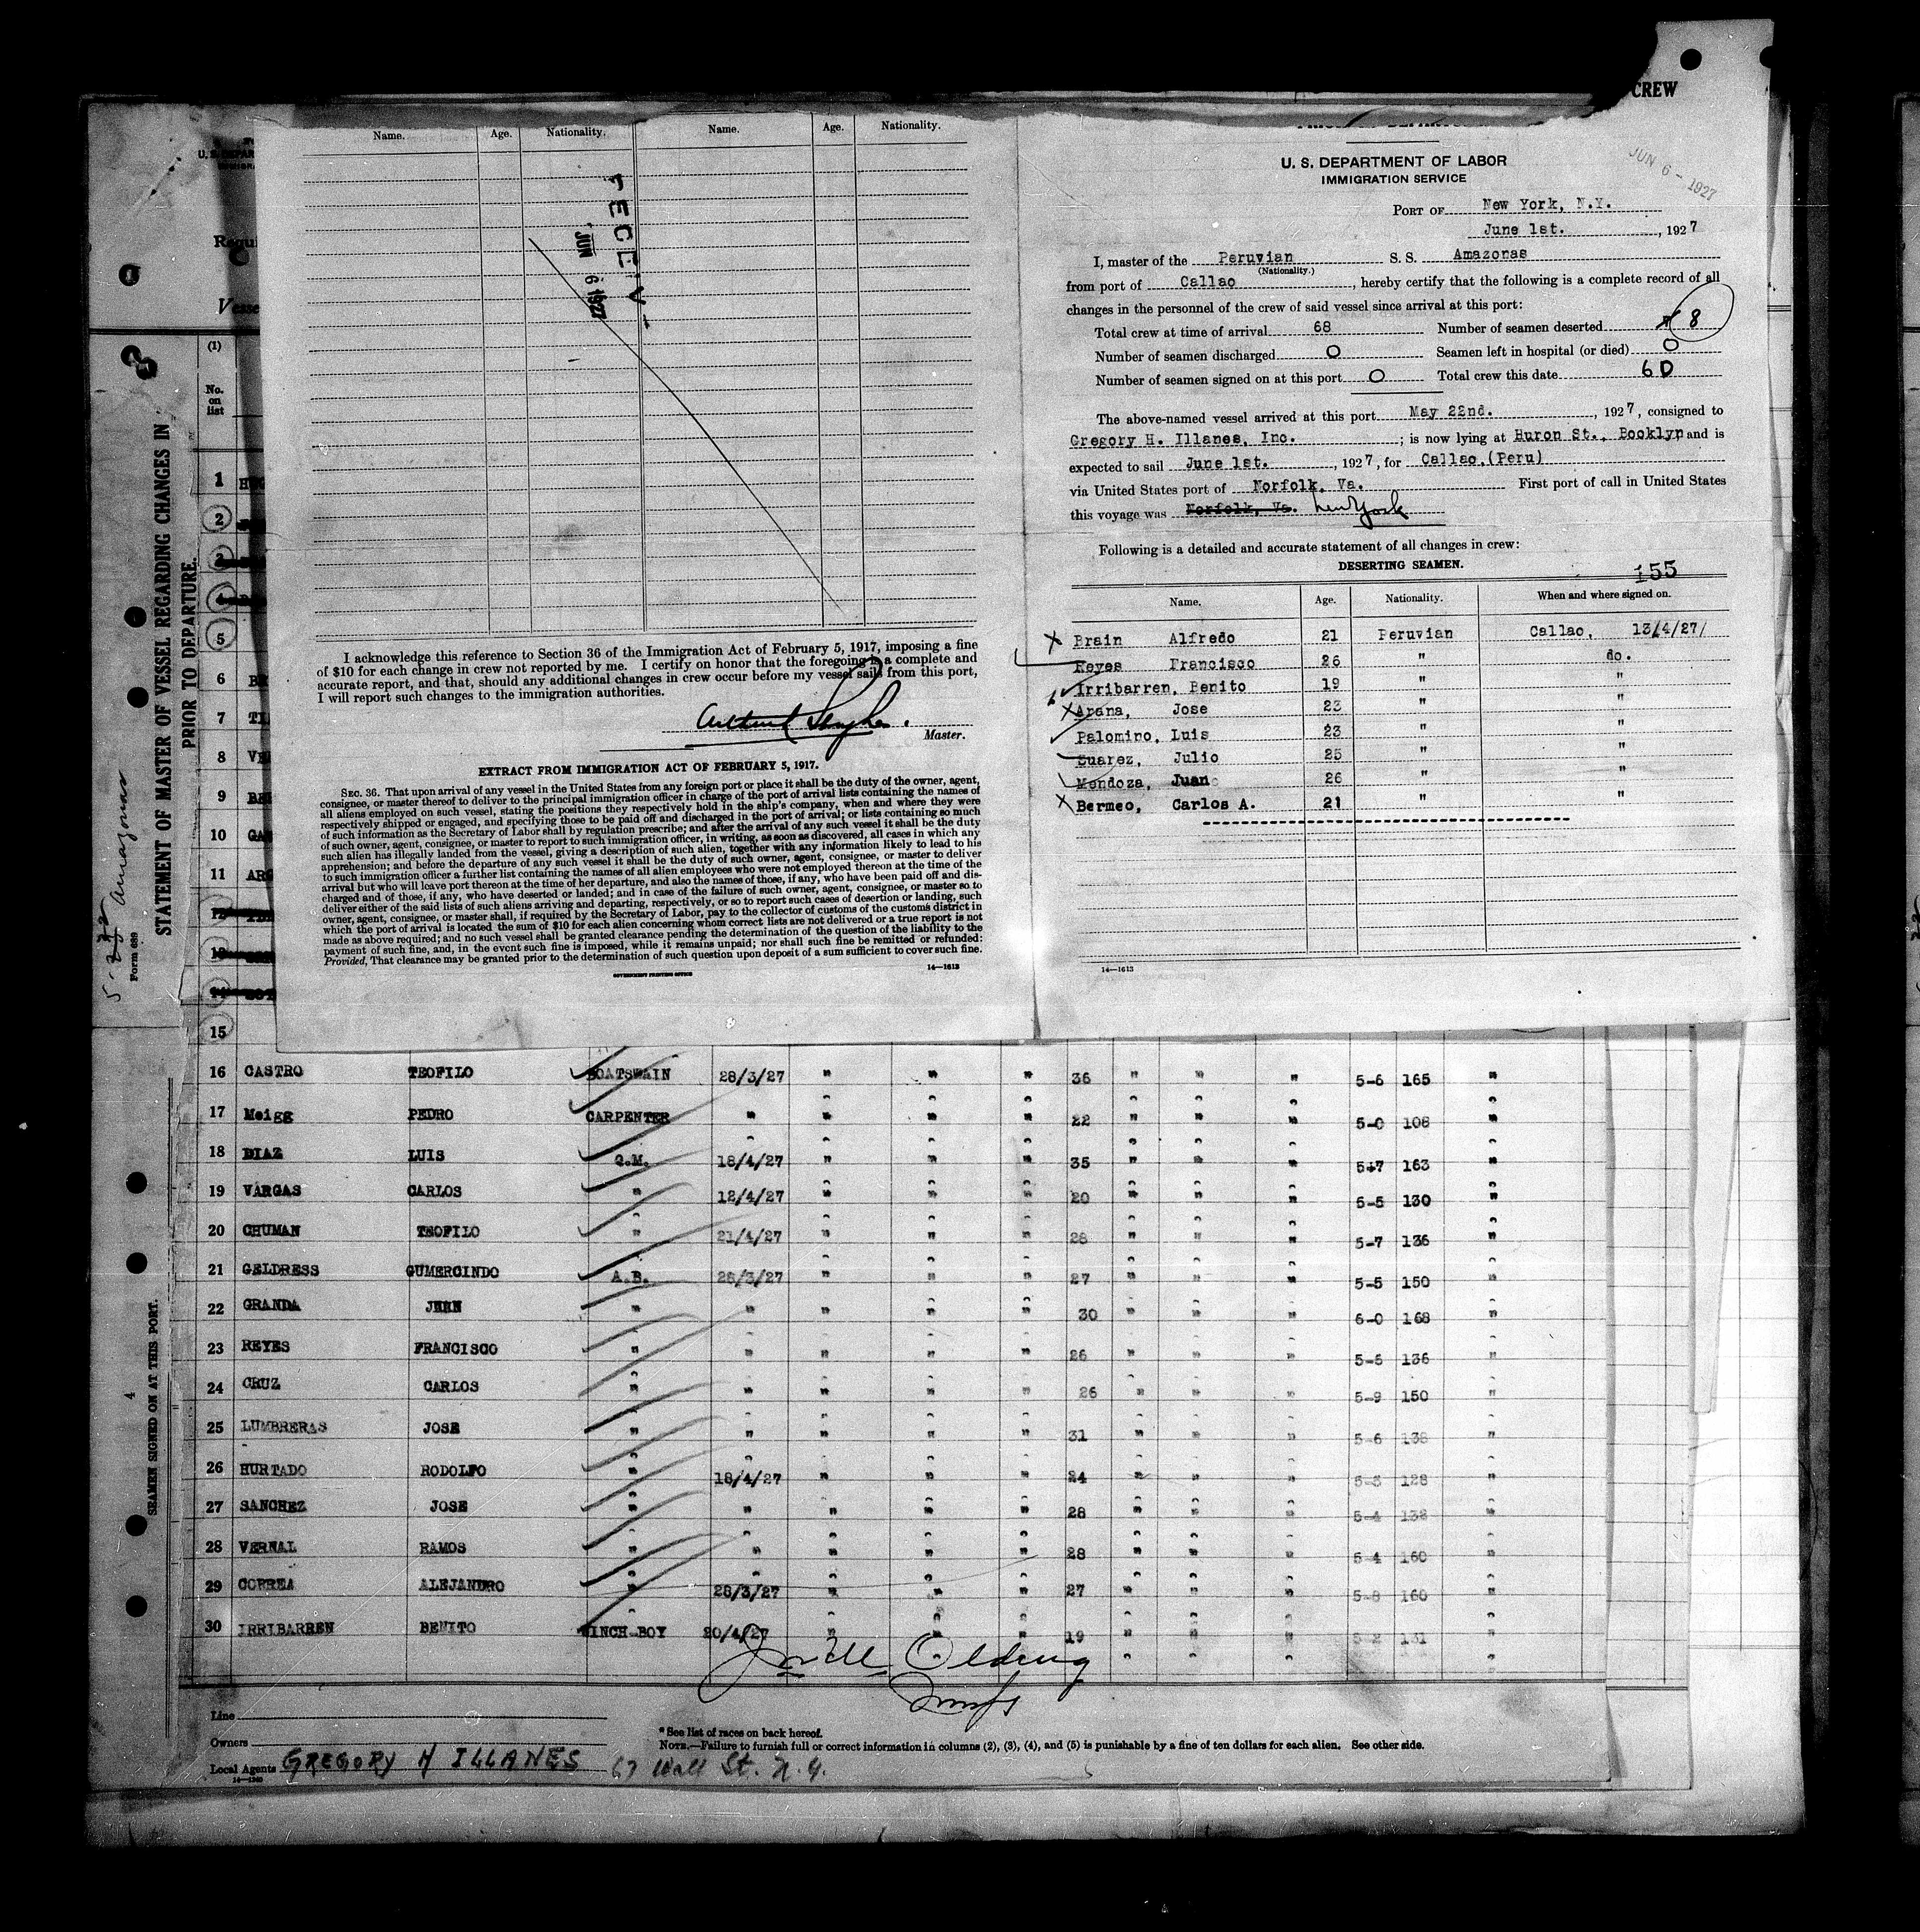 CREW
Name. Age. Nationality. Name. Age. Nationality.
JUN 6 1927
I acknowledge this reference to Section 36 of the Immigration Act of February 5, 1917, imposing a fine
of $10 for each change in crew not reported by me. I certify on honor that the foregoing is a complete and
accurate report, and that, should any additional changes in crew occur before my vessel sails from this port,
I will report such changes to the immigration authorities.
Master.
EXTRACT FROM IMMIGRATION ACT OF FEBRUARY 5, 1917.
SEC. 36. That upon arrival of any vessel in the United States from any foreign port or place it shall be the duty of the owner, agent,
consignee, or master thereof to deliver to the principal immigration officer in charge of the port of arrival lists containing the names of
all aliens employed on such vessel, stating the positions they respectively hold in the ship's company, when and where they were
respectively shipped or engaged, and specifying those to be paid off and discharged in the port of arrival; or lists containing so much
of such information as the Secretary of Labor shall by regulation prescribe; and after the arrival of any such vessel it shall be the duty
of such owner, agent, consignee, or master to report to such immigration officer, in writing, as soon as discovered, all cases in which any
such alien has illegally landed from the vessel, giving a description of such alien, together with any information likely to lead to his
apprehension; and before the departure of any such vessel it shall be the duty of such owner, agent, consignee, or master to deliver
to such immigration officer a further list containing the names of all alien employees who were not employed thereon at the time of the
arrival but who will leave port thereon at the time of her departure, and also the names of those, if any, who have been paid off and dis-
charged and of those, if any, who have deserted or landed; and in case of the failure of such owner, agent, consignee, or master so to
deliver either of the said lists of such aliens arriving and departing, respectively, or so to report such cases of desertion or landing, such
owner, agent, consignee, or master shall, if required by the Secretary of Labor, pay to the collector of customs of the customs district in
which the port of arrival is located the sum of $10 for each alien concerning whom correct lists are not delivered or a true report is not
made as above required; and no such vessel shall be granted clearance pending the determination of the question of the liability to the
payment of such fine, and, in the event such fine is imposed, while it remains unpaid; nor shall such fine be remitted or refunded:
Provided, That clearance may be granted prior to the determination of such question upon deposit of a sum sufficient to cover such fine.
GOVERNMENT PRINTING OFFICE 14—1613
U. S. DEPARTMENT OF LABOR
IMMIGRATION SERVICE
JUN 6 - 1927
PORT OF New York, N.Y.
June 1st. , 1927
I, master of the Peruvian S. S. Amazonas
(Nationality.)
from port of Callao , hereby certify that the following is a complete record of all
changes in the personnel of the crew of said vessel since arrival at this port:
Total crew at time of arrival 68 Number of seamen deserted 8
Number of seamen discharged 0 Seamen left in hospital (or died) 0
Number of seamen signed on at this port 0 Total crew this date 60
The above-named vessel arrived at this port May 22nd. , 1927, consigned to
Gregory H. Illanes, Inc. ; is now lying at Huron St., Booklyn and is
expected to sail June 1st. , 1927, for Callao,(Peru)
via United States port of Norfolk, Va. First port of call in United States
this voyage was Norfolk, Va. New York
Following is a detailed and accurate statement of all changes in crew:
DESERTING SEAMEN.
155
Name. Age. Nationality. When and where signed on.
X Brain Alfredo 21 Peruvian Callao, 13/4/27/
Reyes Francisco 26 " do.
Irribarren, Benito 19 " "
X Arana, Jose 23 " "
Palomino, Luis 23 " "
Suarez, Julio 25 " "
Mendoza, Juan 26 " "
X Bermeo, Carlos A. 21 " "
14—1613
STATEMENT OF MASTER OF VESSEL REGARDING CHANGES IN
PRIOR TO DEPARTURE.
Form 689
Amazonas
SEAMEN SIGNED ON AT THIS PORT.
4
(1)
No. on list
1
2
5
6
7
8
9
10
11
15
16 CASTRO TEOFILO BOATSWAIN 28/3/27 " " " 36 " " " 5-6 165 "
17 Meigg PEDRO CARPENTER " " " " 22 " " " 5-0 108 "
18 DIAZ LUIS Q.M. 18/4/27 " " " 35 " " " 5-7 163 "
19 VARGAS CARLOS " 12/4/27 " " " 20 " " " 5-5 130 "
20 CHUMAN TEOFILO " 21/4/27 " " " 28 " " " 5-7 136 "
21 GELDRESS GUMERCINDO A.B. 28/3/27 " " " 27 " " " 5-5 150 "
22 GRANDA " " " " " 30 " " " 6-0 168 "
23 REYES FRANCISCO " " " " " 26 " " " 5-5 136 "
24 CRUZ CARLOS " " " " " 26 " " " 5-9 150 "
25 LUMBRERAS JOSE " " " " " 31 " " " 5-6 138 "
26 HURTADO RODOLFO " 18/4/27 " " " 24 " " " 5-5 128 "
27 SANCHEZ JOSE " " " " " 28 " " " 5-4 138 "
28 VERNAL RAMOS " " " " " 28 " " " 5-4 160 "
29 CORREA ALEJANDRO " 28/3/27 " " " 27 " " " 5-8 160 "
30 IRRIBARREN BENITO WINCH-BOY 20/4/27 " " " 19 " " " 5-2 131 "
Line
Owners
Local Agents GREGORY H ILLANES 67 Wall St. N.Y.
*See list of races on back hereof.
NOTE.—Failure to furnish full or correct information in columns (2), (3), (4), and (5) is punishable by a fine of ten dollars for each alien. See other side.